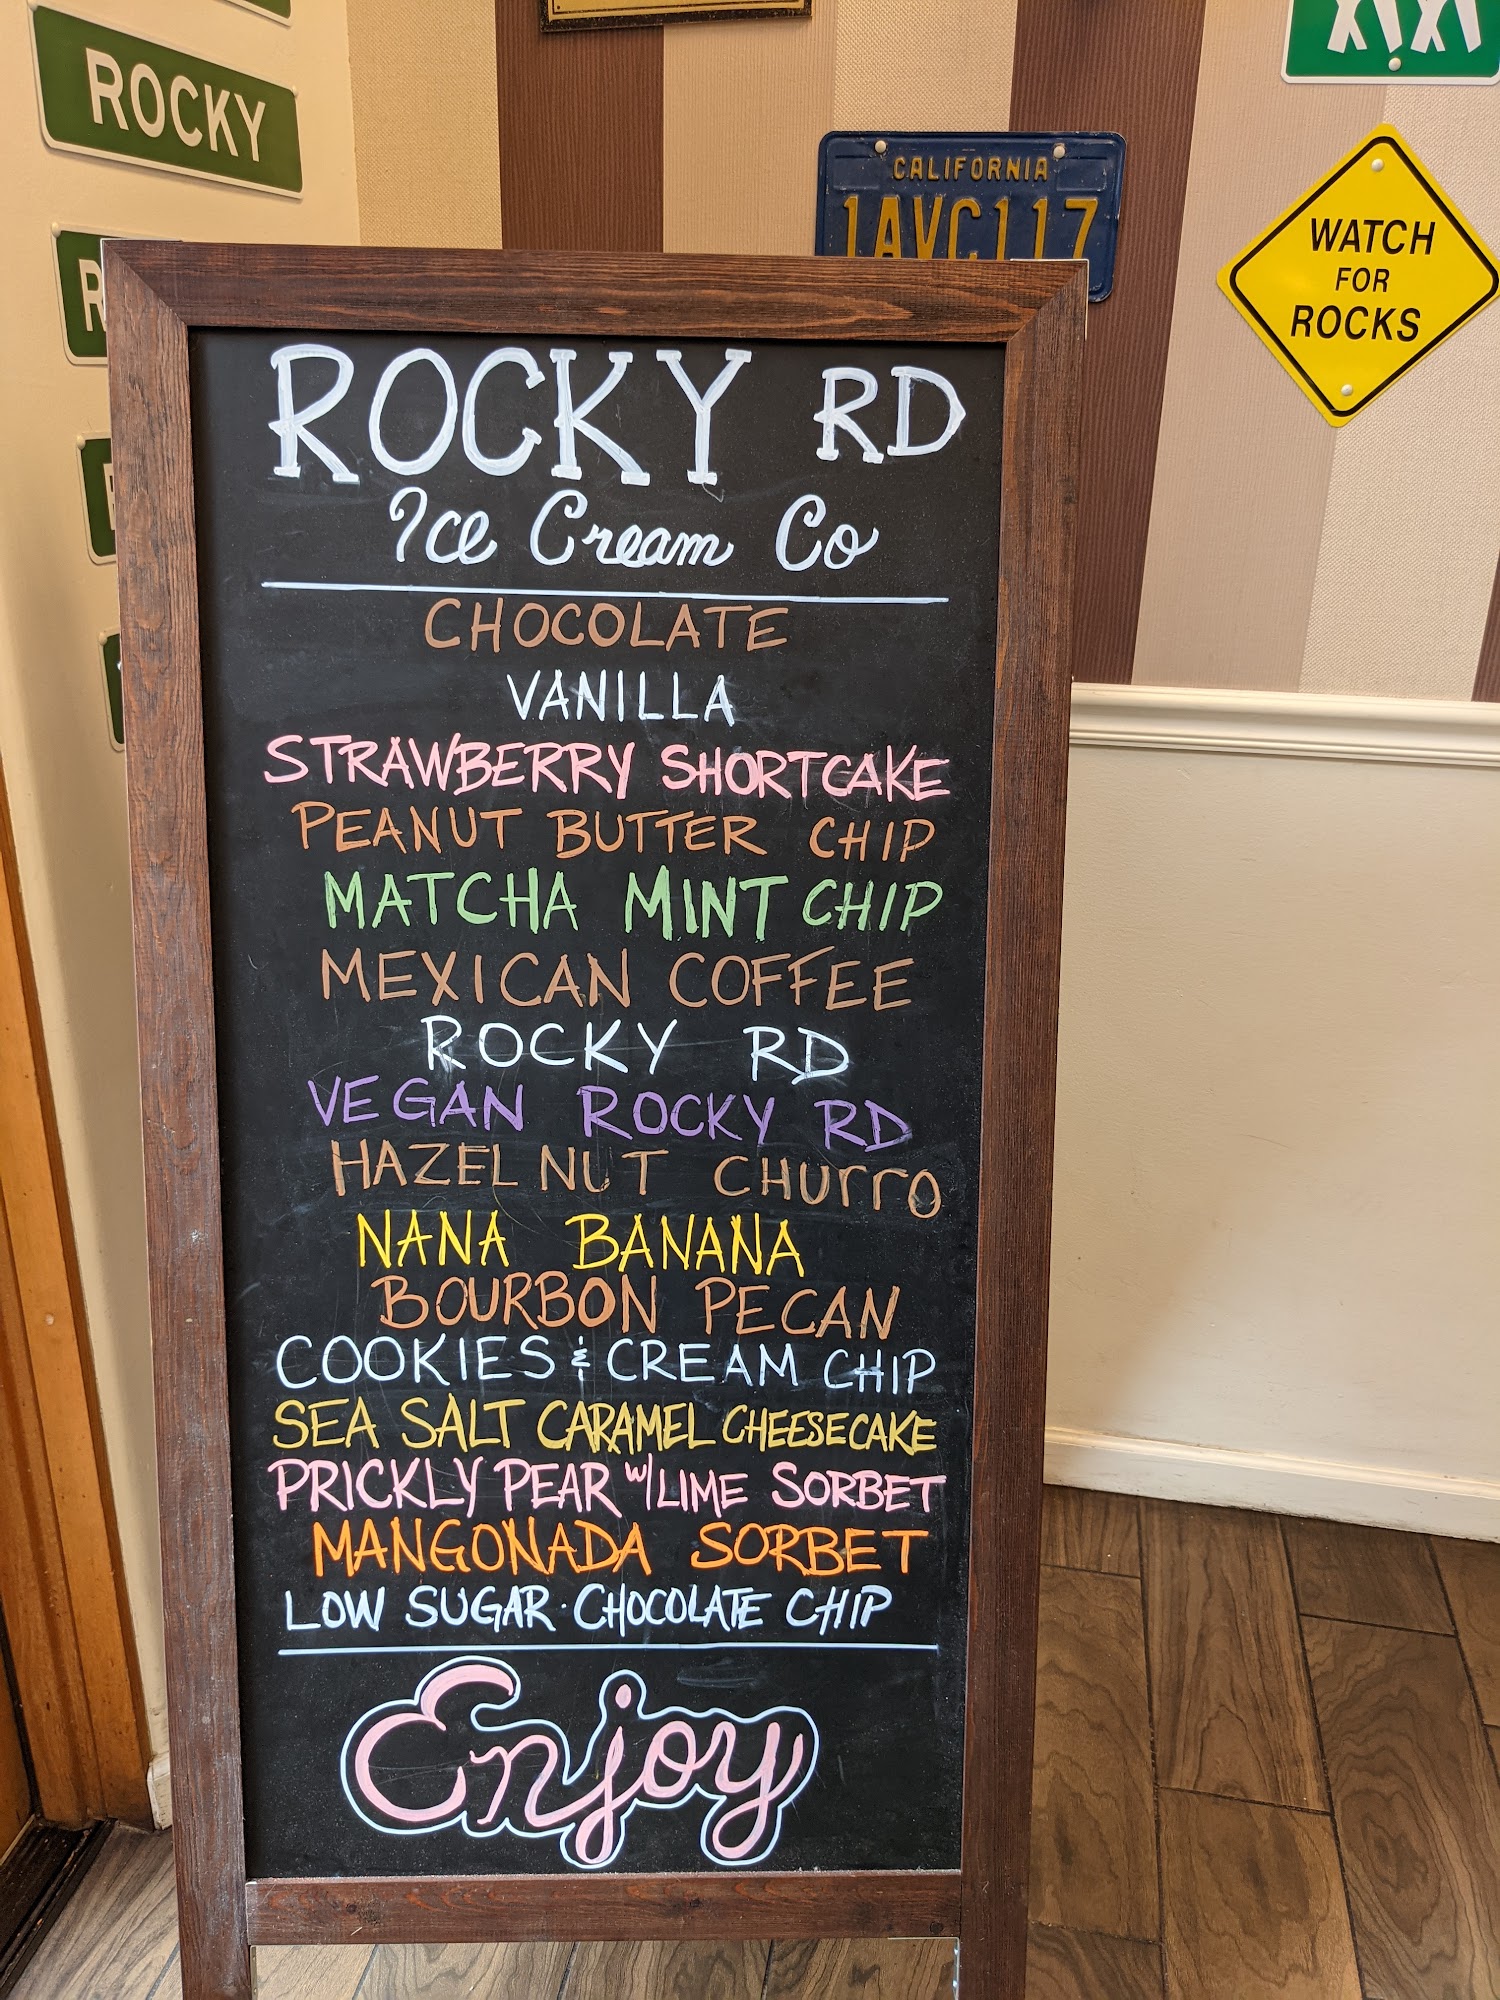 ROCKY
CALIFORNIA
1AVC117
WATCH
FOR
ROCKS
ROCKY RD
Ice Cream Co
CHOCOLATE
VANILLA
STRAWBERRY SHORTCAKE
PEANUT BUTTER CHIP
MATCHA MINT CHIP
MEXICAN COFFEE
ROCKY RD
VEGAN ROCKY RD
HAZELNUT CHURRO
NANA BANANA
BOURBON PECAN
COOKIES & CREAM CHIP
SEA SALT CARAMEL CHEESECAKE
PRICKLY PEAR W/ LIME SORBET
MANGONADA SORBET
LOW SUGAR · CHOCOLATE CHIP
Enjoy